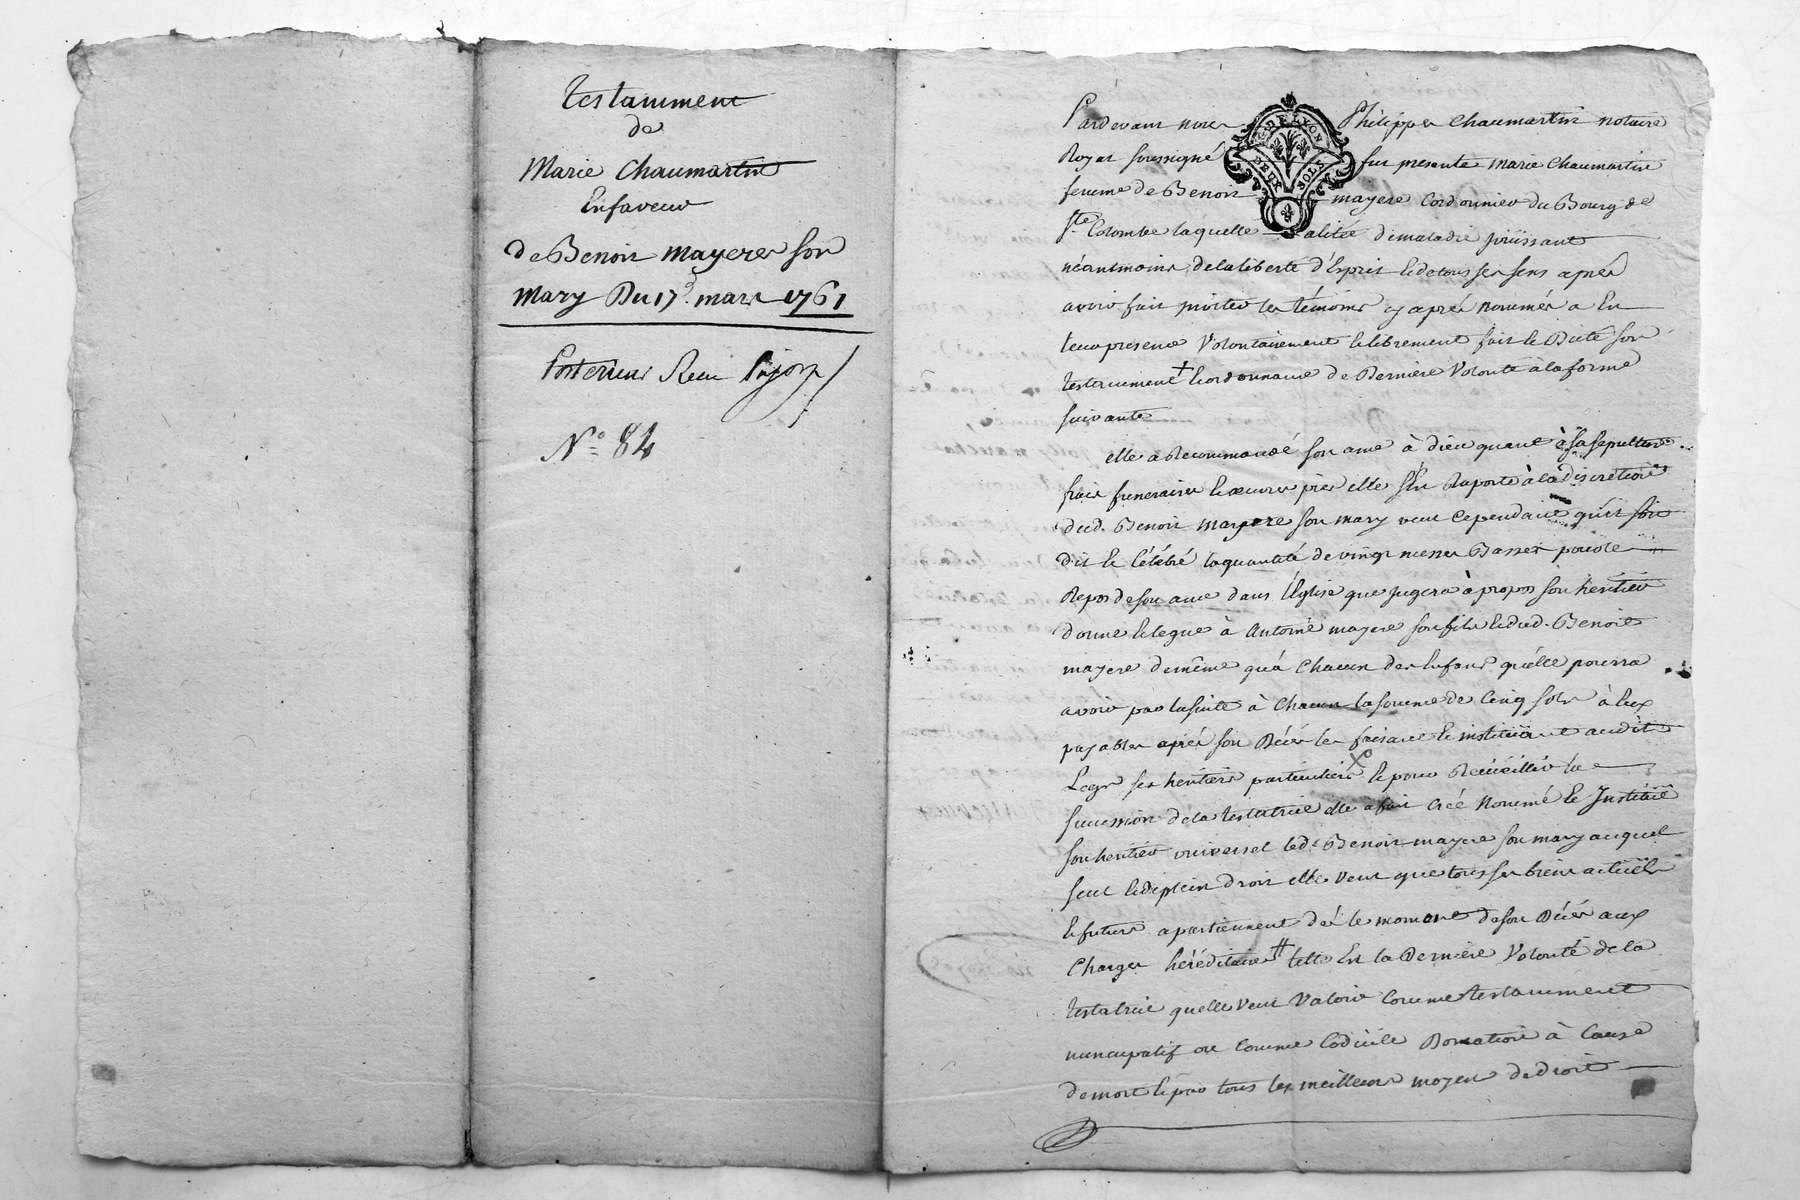 testamment
de
Marie Chaumartin
Enfaveur
de Benoit mayere son
mary Du 17e. mars 1761
Posterieur Receu
N.o 84
Pardevant nous Philippes Chaumartin notaire
Royal soussigné fut presente marie Chaumartin
femme de Benoit mayere Cordonnier du Bourg de
Ste. Colombe laquelle alitée de maladie joüissant
néantmoins de la liberté d'Esprit & de tous ses sens après
avoir fait inviter les témoins cy après nommés a En
leur presence Volontairement & librement fait & Dicté son
testamment & ordonnance de Derniere Volonté à la forme
suivante
elle a Recommandé son ame à dieu quant à sa sepulture
frais funeraires & œuvres pies elle s'En Raporte à la discretion
dud. Benoit mayere son mary veut Cependant qu'il soit
dit & Célébré la quantité de vingt messes Basses pour le
Repos de son ame dans l'Eglise que jugera à propos son héritier
donne & legue à antoine mayere son fils & dud. Benoit
mayere de même qu'à Chacun des Enfans qu'elle pourra
avoir par la suite à Chacun la somme de Cinq sols à Eux
payables après son Décès les faisant & instituant audit
Legs ses heritiers particuliers & pour Recüeillir la
succession de la testatrice elle a fait Créé Nommé & Institué
son heritier universel led. Benoit mayere son mary auquel
seul & de plein droit elle veut que tous ses biens actuels
& futurs apartiennent dès le moment de son Décès aux
Charges héréditaires # telle Est la Derniere Volonté de la
testatrice quelle veut Valoir Comme testamment
nuncupatif ou Comme Codicile Donation à Cause
de mort & par tous les meilleurs moyens de droit
DE LYON
DEUX SOLS